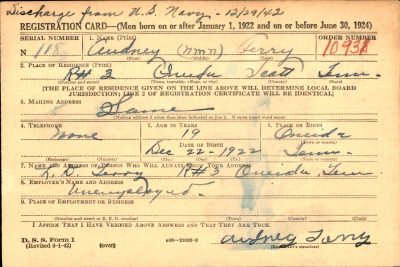 Discharge from U.S. Navy - 12/29/42
REGISTRATION CARD—(Men born on or after January 1, 1922 and on or before June 30, 1924)
SERIAL NUMBER 1. NAME (Print) ORDER NUMBER
N 118 Audney (nmn) Terry 10938
(First) (Middle) (Last)
2. PLACE OF RESIDENCE (Print)
R# 3 Oneida Scott Tenn.
(Number and street) (Town, township, village, or city) (County) (State)
[THE PLACE OF RESIDENCE GIVEN ON THE LINE ABOVE WILL DETERMINE LOCAL BOARD
JURISDICTION; LINE 2 OF REGISTRATION CERTIFICATE WILL BE IDENTICAL]
3. MAILING ADDRESS
Same
[Mailing address if other than place indicated on line 2. If same insert word same]
4. TELEPHONE 5. AGE IN YEARS 6. PLACE OF BIRTH
none 19 Oneida
DATE OF BIRTH
Dec 22 - 1922 Tenn.
7. NAME AND ADDRESS OF PERSON WHO WILL ALWAYS KNOW YOUR ADDRESS
Terry R#3 Oneida, Tenn
8. EMPLOYER'S NAME AND ADDRESS
Unemployed -
9. PLACE OF EMPLOYMENT OR BUSINESS
(Number and street or R. F. D. number) (Town) (County) (State)
I AFFIRM THAT I HAVE VERIFIED ABOVE ANSWERS AND THAT THEY ARE TRUE.
D. S. S. Form 1
(over)
audney Terry
(Registrant's signature)